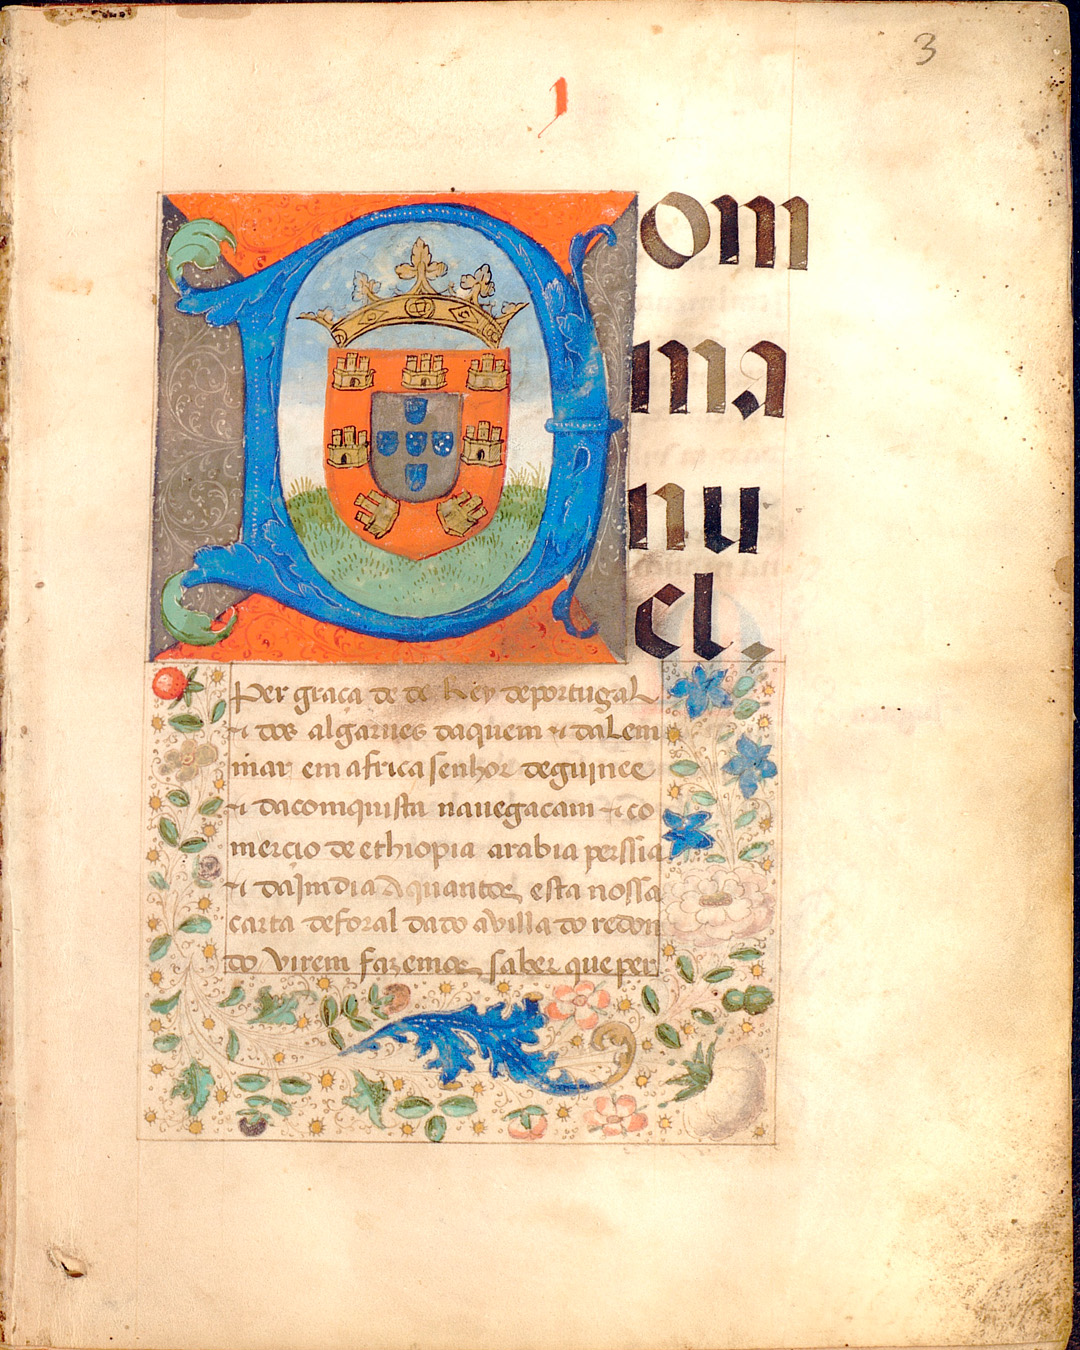 3
1
Dom
ma
nu
el,
Per graca de de Rey deportugal
⁊ dos algarues daquem ⁊ dalem
mar em africa senhor deguinee
⁊ dacomquista nauegacam ⁊ co
mercio de ethiopia arabia perssia
⁊ da Jmdia A quantos esta nossa
carta deforal dado a villa do redon
do virem fazemos saber que per